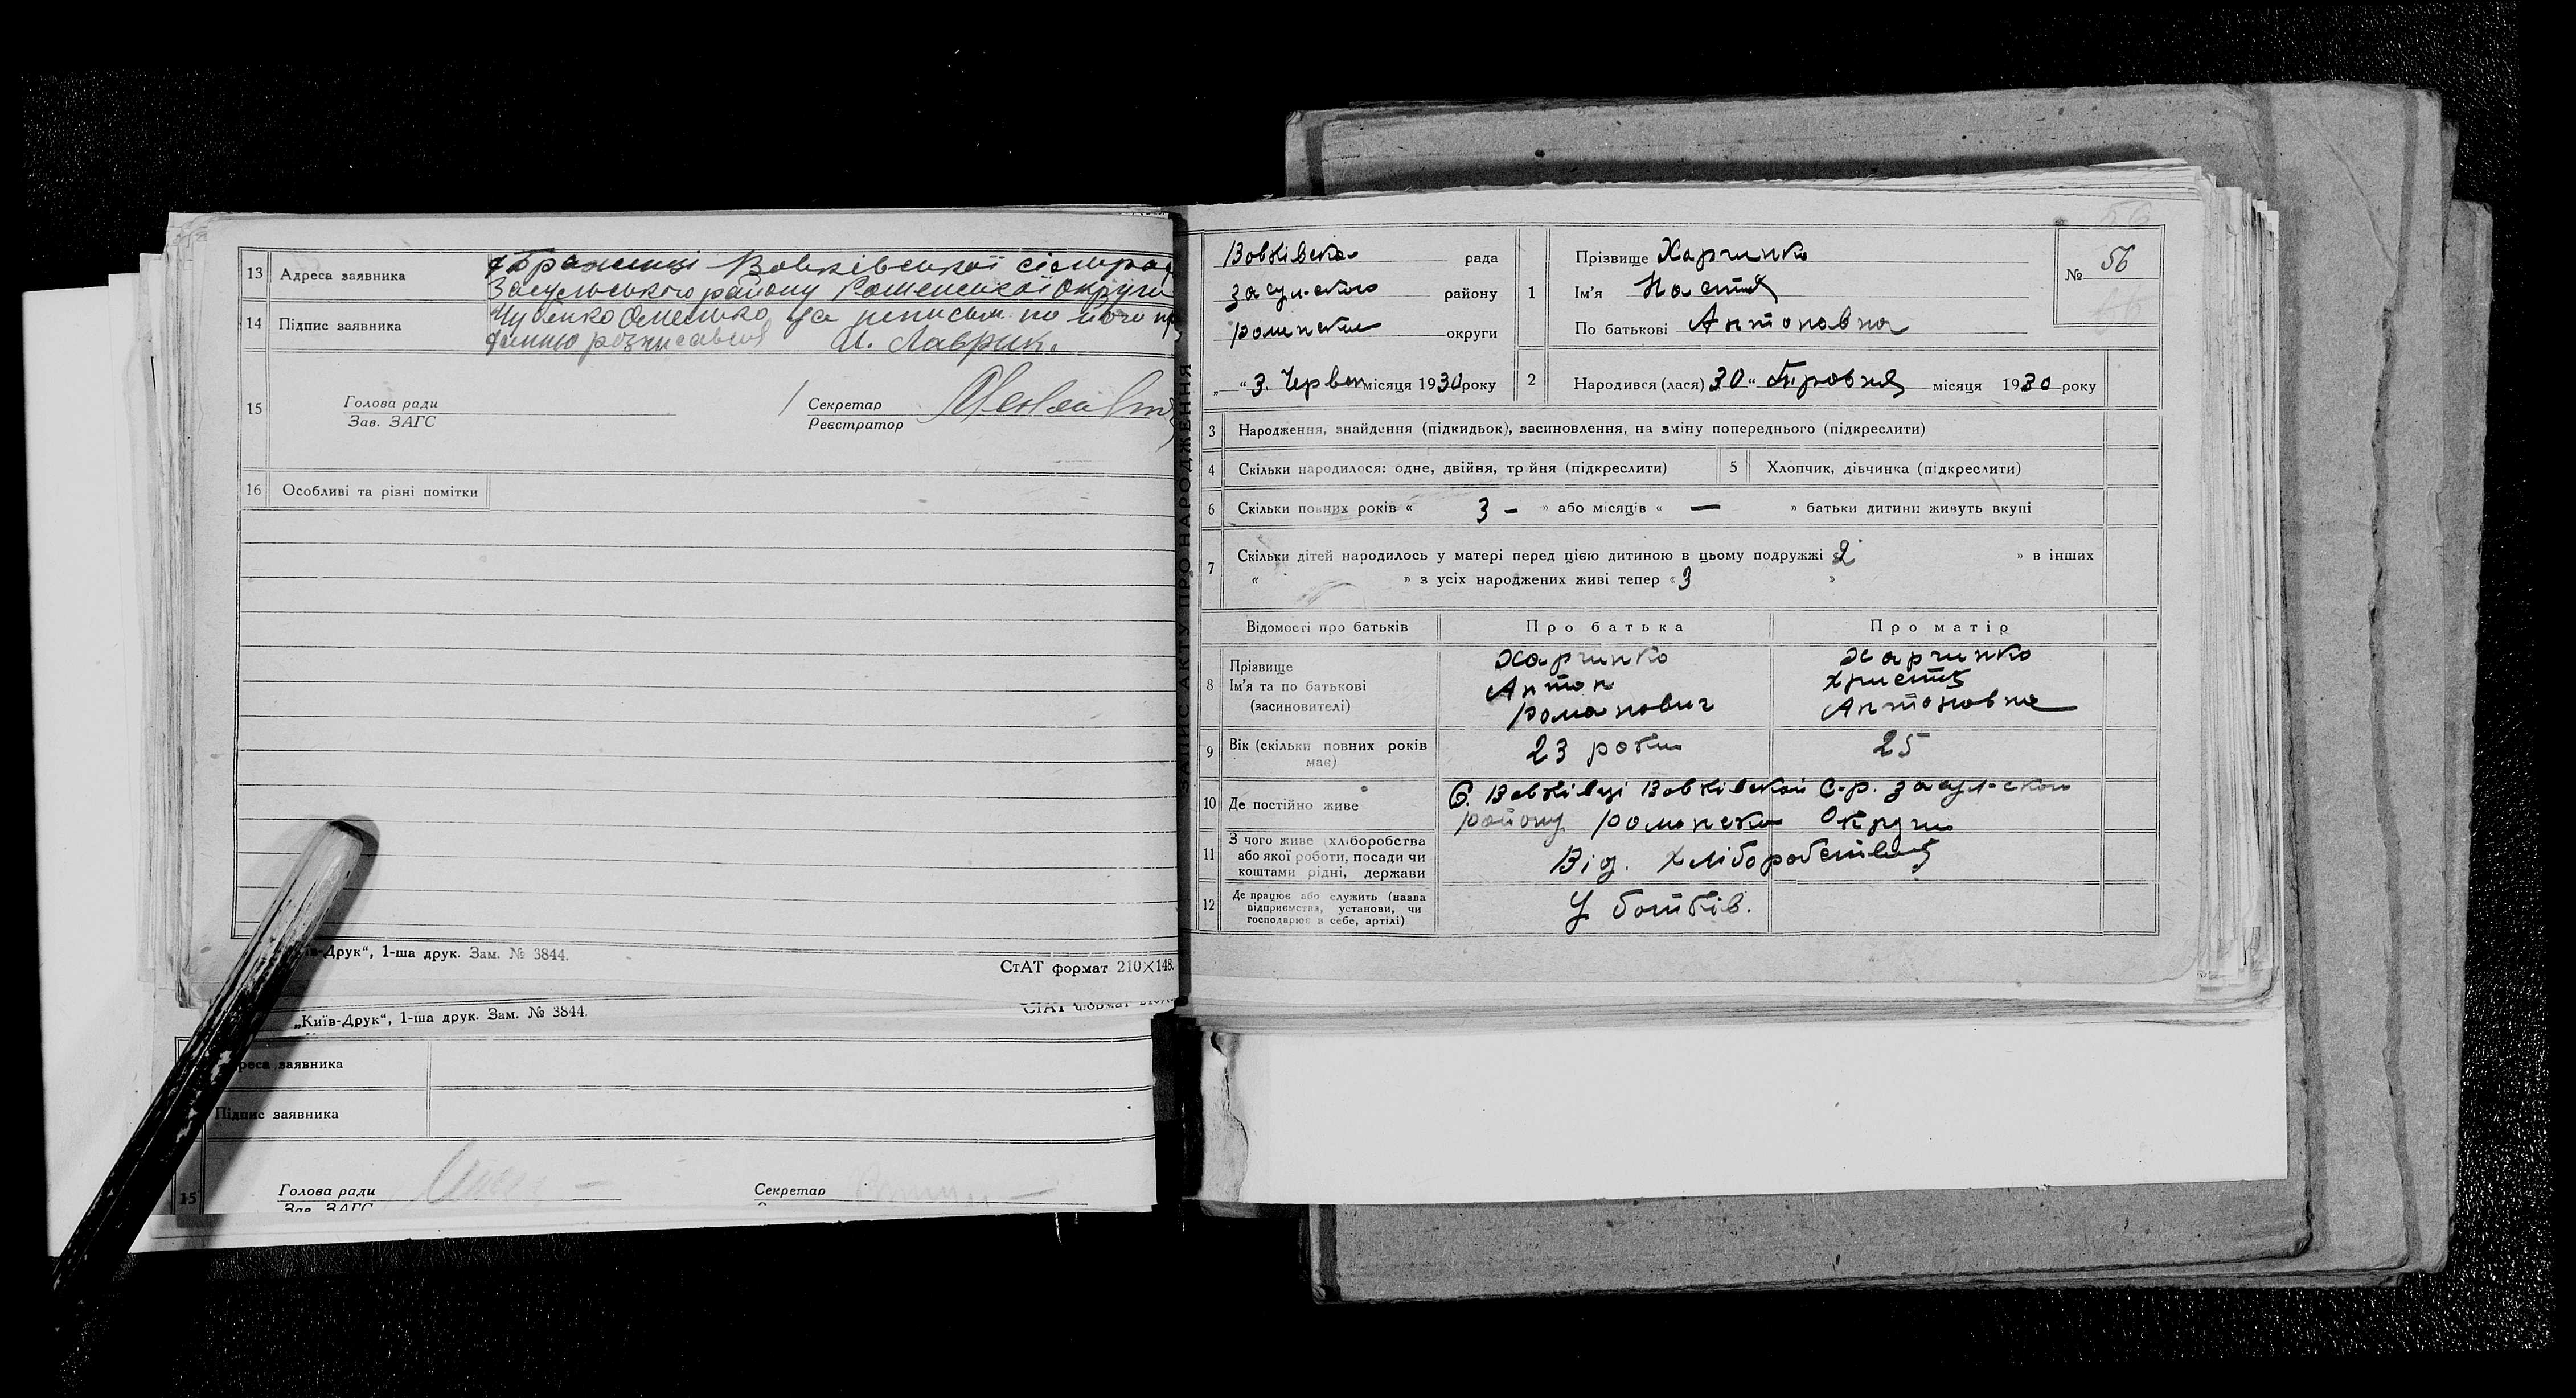 13 Адреса заявника
Вовківської сільрад
Засульського району Роменської Округи
14 Підпис заявника
розписався Лаврик.
15 Голова ради Секретар
Зав. ЗАГС Реєстратор
16 Особливі та різні помітки
-Друк“, 1-ша друк. Зам. № 3844.
СтАТ формат 210×148.
„Київ-Друк“, 1-ша друк. Зам. № 3844.
СтАТ формат
реса заявника
Підпис заявника
15 Голова ради Секретар
Зав. ЗАГС
ЗАПИС АКТУ ПРО НАРОДЖЕННЯ
56
Вовківська рада
засул-ского району
роменски округи
„ “ 3. Червен місяця 1930 року
1 Прізвище Харчинко
Ім'я Настя
По батькові Антоновна
№ 56
2 Народився (лася) 30 “ Травня місяця 1930 року
3 Народження, знайдення (підкидьок), засиновлення, на зміну попереднього (підкреслити)
4 Скільки народилося: одне, двійня, трійня (підкреслити) 5 Хлопчик, дівчинка (підкреслити)
6 Скільки повних років « 3 – » або місяців « — » батьки дитини живуть вкупі
7 Скільки дітей народилось у матері перед цією дитиною в цьому подружжі « 2 » в інших
« » з усіх народжених живі тепер « 3 »
Відомості про батьків Про батька Про матір
8 Прізвище Харчинко Харчинко
Ім'я та по батькові Антон Христя
(засиновителі) Романович Антоновна
9 Вік (скільки повних років має) 23 роки 25
10 Де постійно живе С. Вовківці Вовківской С-р. засул-ского
району роменски Округи
11 З чого живе (хліборобства
або якої роботи, посади чи
коштами рідні, держави
Від. хліборобства
12 Де працює або служить (назва
підприємства, установи, чи
господарює в себе, артілі)
У батків.